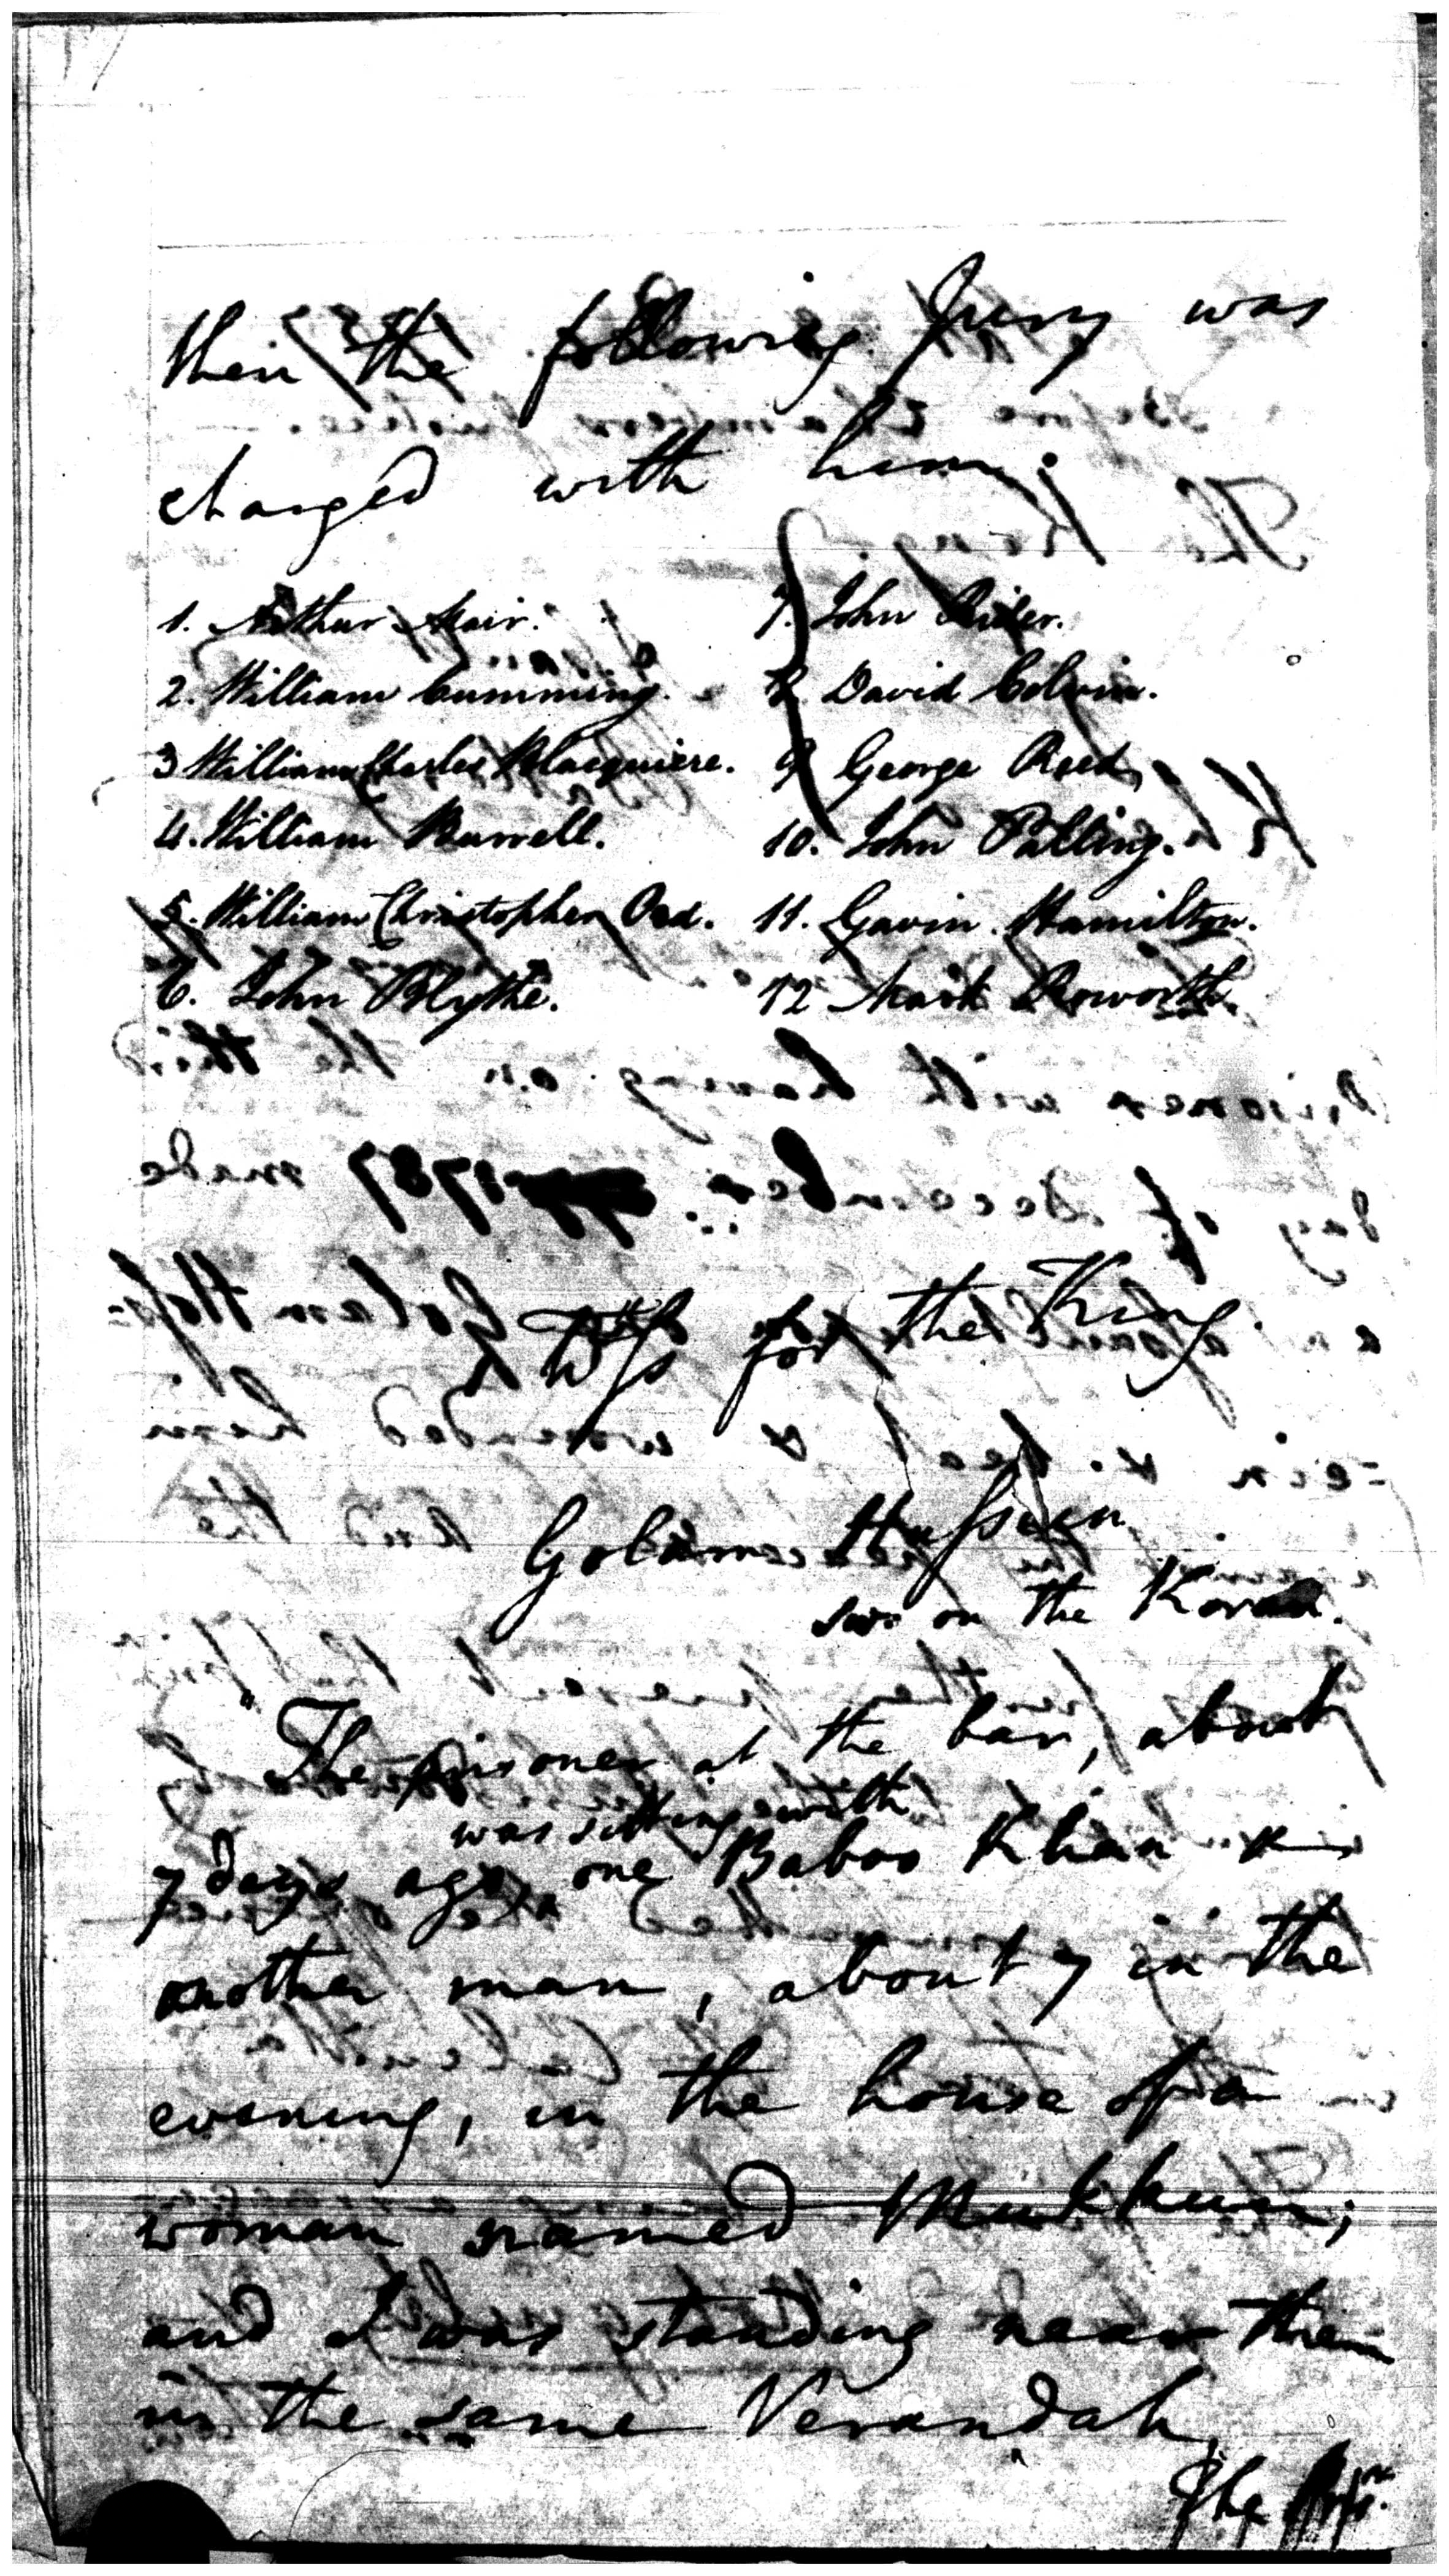 then the following Jury was
charged with him:
1. Arthur Mair. 7. John Rider.
2. William Cumming. 8. David Colvin.
3 William Charles Blacquiere. 9 George Reed
4. William Burrell. 10. John Palling.
5. William Christopher Ord. 11. Gavin Hamilton.
6. John Blythe. 12 Mark Roworth.
for the King.
Golam Hussein
swo on the Koran.
"The prisoner at the bar, about
was sitting with
7 days ago, one Baboo Khan &
another man, about 7 in the
evening, in the house of a
woman named Mukkun;
and I was standing near them
in the same Verandah.
The